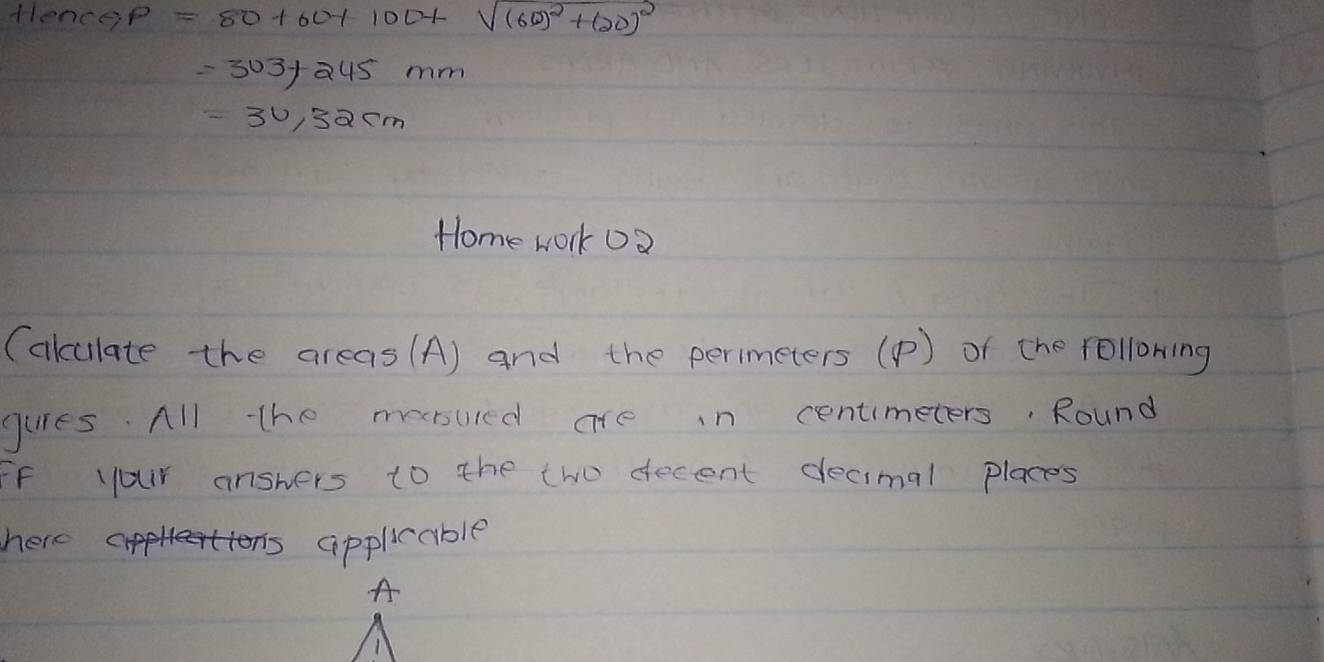 Hence, P = 80 + 60 + 100 + √(60)² + (20)²
= 303, 245 mm
= 30,32 cm
Home work 02
Calculate the areas (A) and the perimeters (P) of the following
gures. All the measured are in centimeters. Round
ff your answers to the two decent decimal places
here applications applicable
A